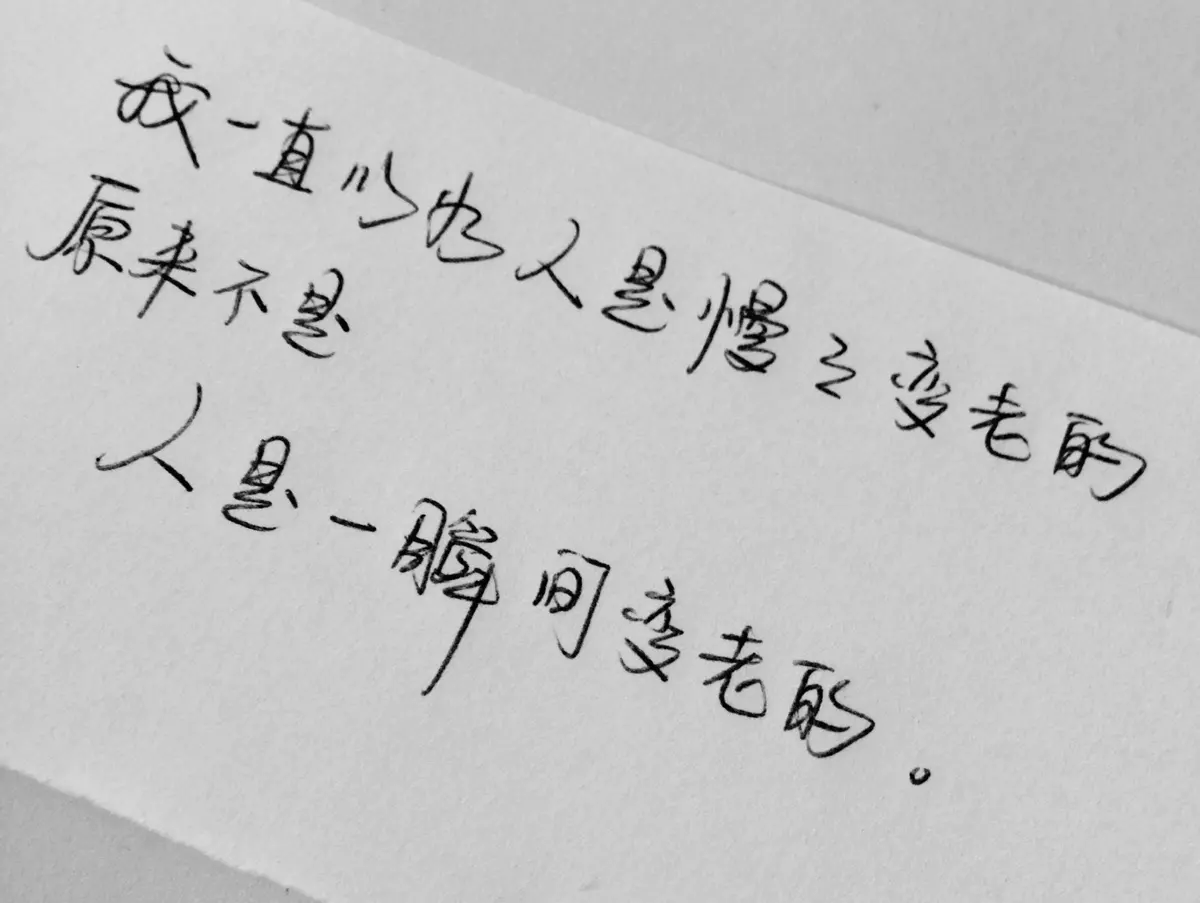 我一直以为人是慢々变老的
原来不是
人是一瞬间变老的。